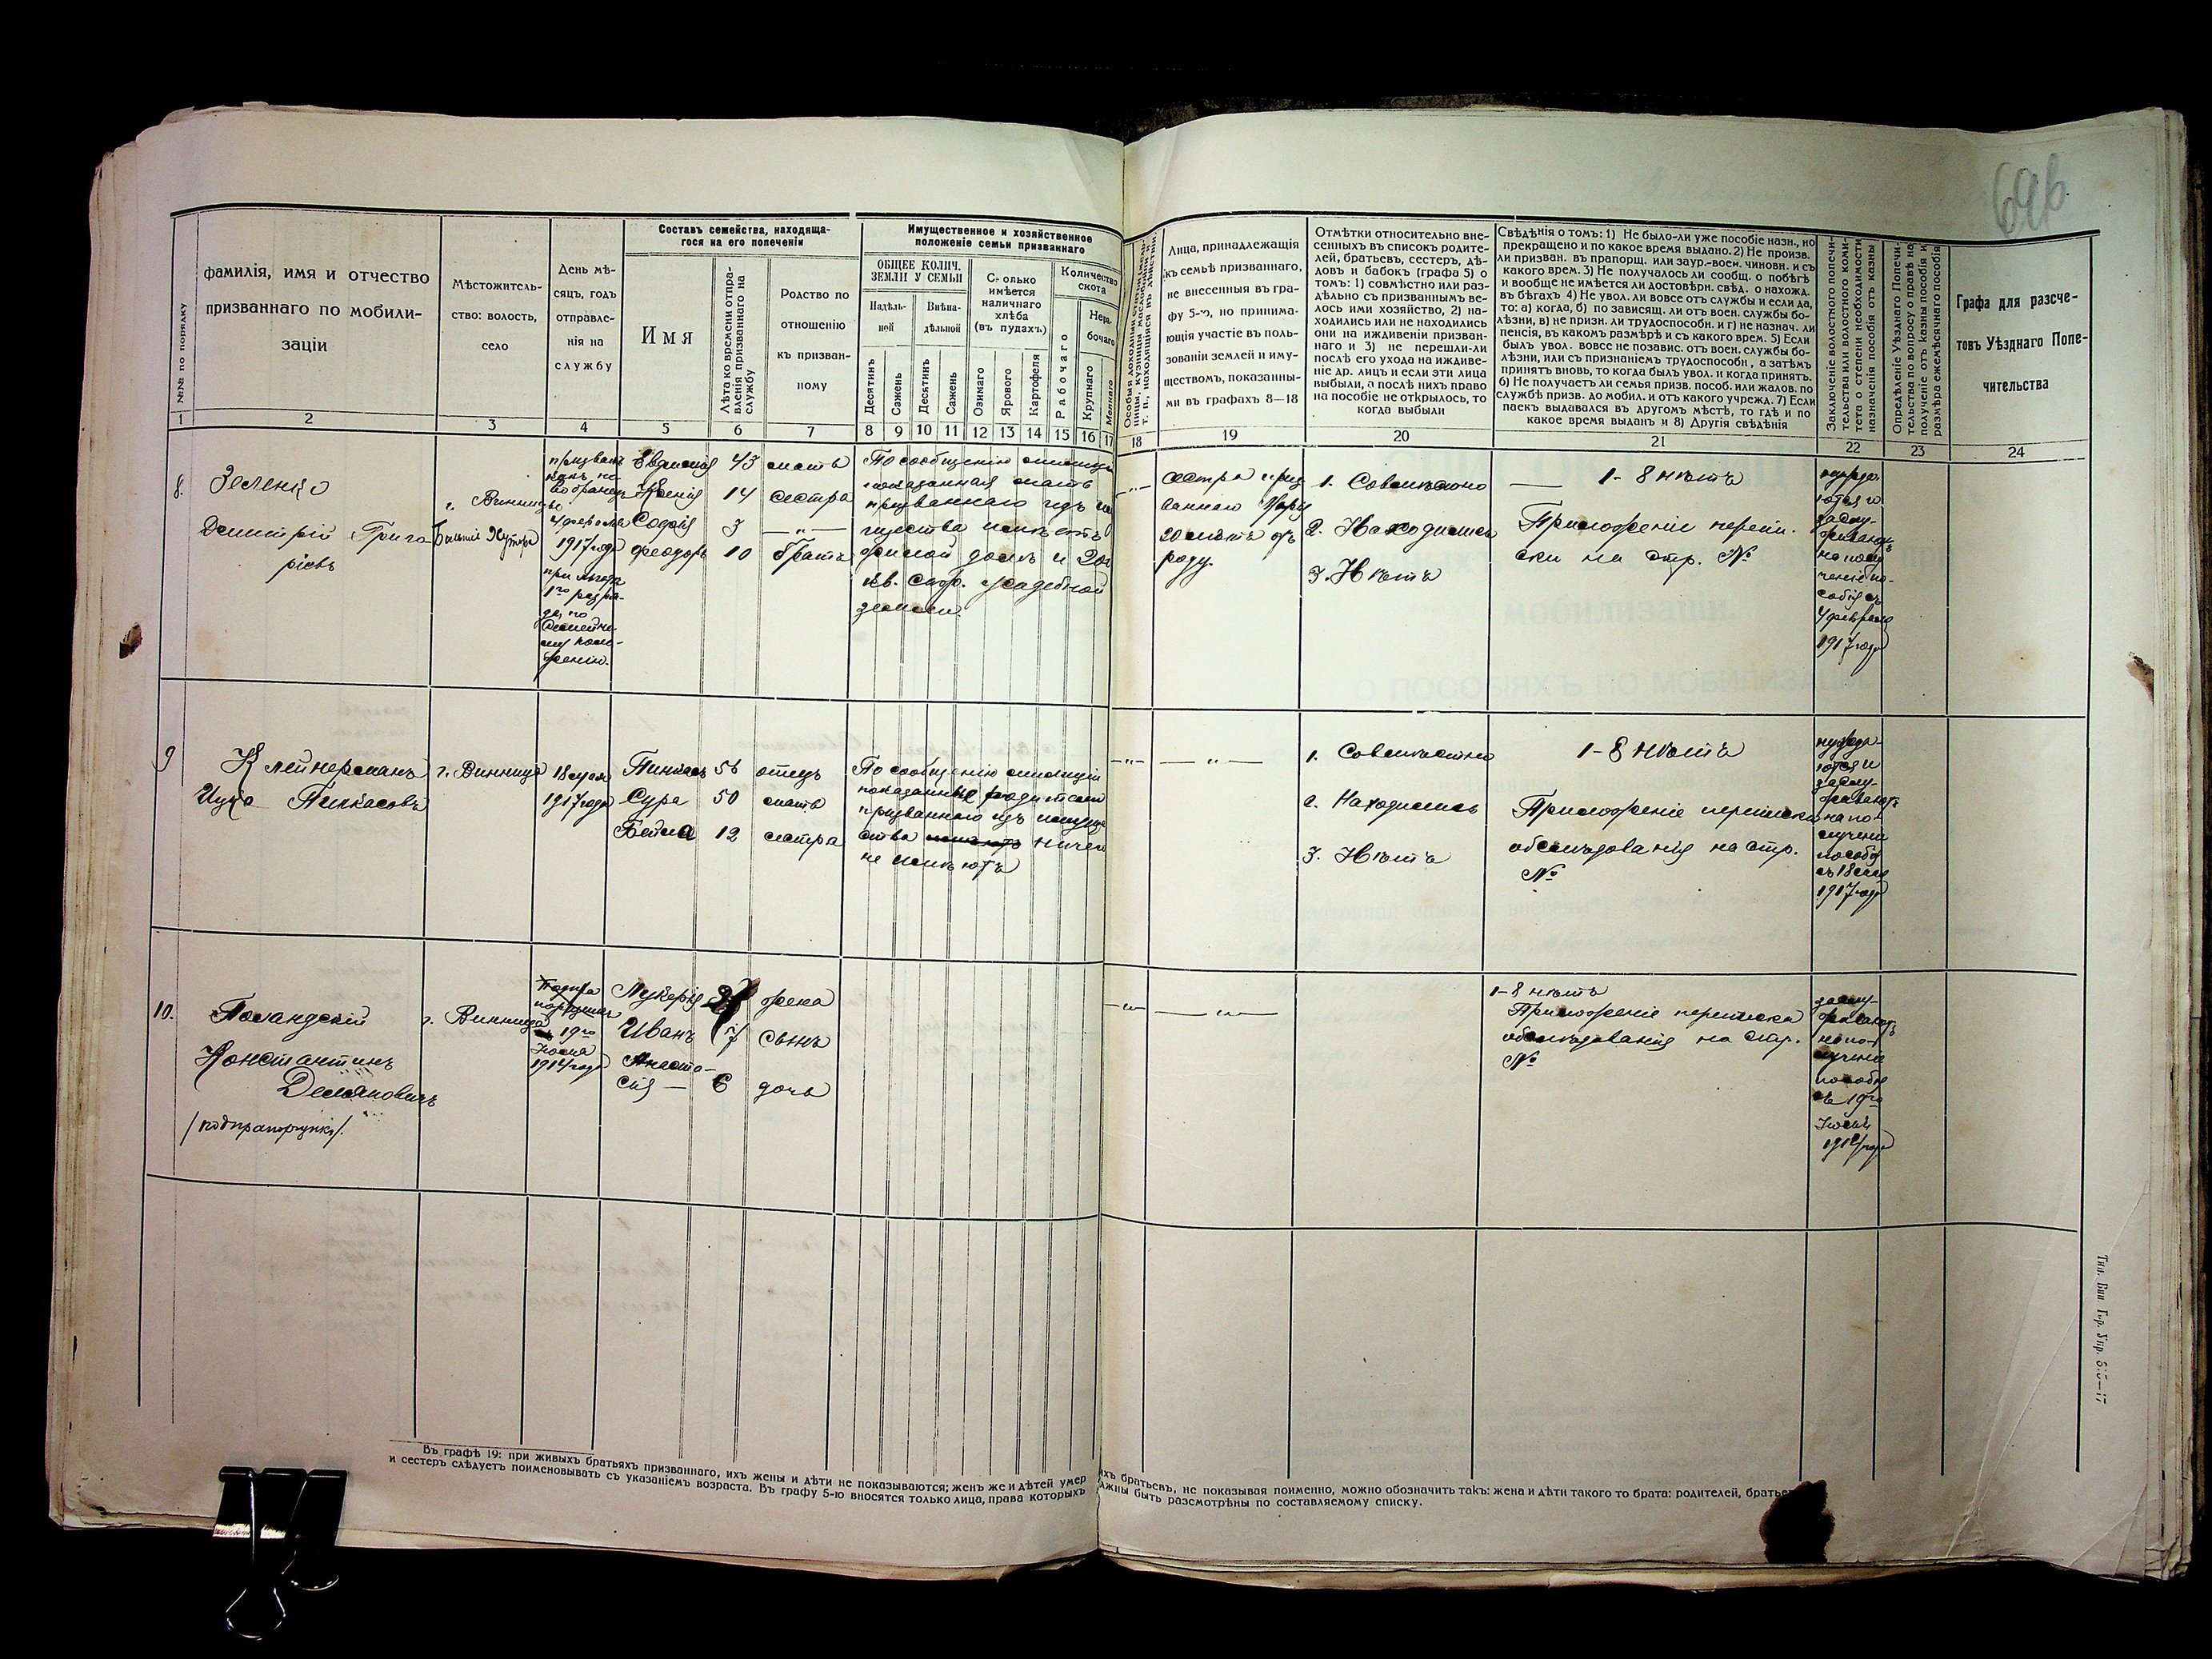 696
№№ по порядку
фамилія, имя и отчество
призваннаго по мобили-
заціи
Мѣстожитель-
ство: волость,
село
День мѣ-
сяцъ, годъ
отправле-
нія на
службу
Составъ семейства, находяща-
гося на его попеченіи
Имя
Лѣта ко времени отпра-
вленія призваннаго на
службу
Родство по
отношенію
къ призван-
ному
Имущественное и хозяйственное
положеніе семьи призваннаго
ОБЩЕЕ КОЛИЧ.
ЗЕМЛИ У СЕМЬИ
Надѣль-
ной
Внѣна-
дѣльной
Десятинъ
Сажень
Десятинъ
Сажень
Сколько
имѣется
наличнаго
хлѣба
(въ пудахъ)
Озимаго
Ярового
Картофеля
Количество
скота
Рабочаго
Нера-
бочаго
Крупнаго
Мелкаго
Лица, принадлежащія
къ семьѣ призваннаго,
не внесенныя въ гра-
фу 5-ю, но принима-
ющія участіе въ поль-
зованіи землей и иму-
ществомъ, показанны-
ми въ графахъ 8—18
Отмѣтки относительно вне-
сенныхъ въ списокъ родите-
лей, братьевъ, сестеръ, дѣ-
довъ и бабокъ (графа 5) о
томъ: 1) совмѣстно или раз-
дѣльно съ призваннымъ ве-
лось ими хозяйство, 2) на-
ходились или не находились
они на иждивеніи призван-
наго и 3) не перешли-ли
послѣ его ухода на иждиве-
ніе др. лицъ и если эти лица
выбыли, а послѣ нихъ право
на пособіе не открылось, то
когда выбыли
Свѣдѣнія о томъ: 1) Не было-ли уже пособіе назн., но
прекращено и по какое время выдано. 2) Не произв.
ли призван. въ прапорщ. или заур.-воен. чиновн. и съ
какого врем. 3) Не получалось ли сообщ. о побѣгѣ
и вообще не имѣется ли достовѣрн. свѣд. о нахожд.
въ бѣгахъ 4) Не увол. ли вовсе отъ службы и если да,
то: а) когда, б) по зависящ. ли отъ воен. службы бо-
лѣзни, в) не призн. ли трудоспособн. и г) не назнач. ли
пенсія, въ какомъ размѣрѣ и съ какого врем. 5) Если
былъ увол. вовсе не позавис. отъ воен. службы бо-
лѣзни, или съ признаніемъ трудоспособн, а затѣмъ
принятъ вновь, то когда былъ увол. и когда принятъ.
6) Не получаетъ ли семья призв. пособ. или жалов. по
службѣ призв. до мобил. и отъ какого учрежд. 7) Если
паекъ выдавался въ другомъ мѣстѣ, то гдѣ и по
какое время выданъ и 8) Другія свѣдѣнія
Заключеніе волостного попечи-
тельства или волостного коми-
тета о степени необходимости
назначенія пособія отъ казны
Опредѣленіе Уѣзднаго Попечи-
тельства по вопросу о правѣ на
полученіе отъ казны пособія и
размѣра ежемѣсячнаго пособія
Графа для разсче-
товъ Уѣзднаго Попе-
чительства
1 2 3 4 5 6 7 8 9 10 11 12 13 14 15 16 17 18 19 20 21 22 23 24
8.
Зеленко
Дмитрій Григо-
ріевъ
г. Винница
4 февраля
1917 года
при льготѣ
1го разря-
да по
семейно-
му поло-
женію.
Евдокія 43 мать
Ксенія 14 сестра
Софія 3 —„—
Феодоръ 10 братъ
По сообщенію милиціи
показанная мать
призваннаго изъ иму
щества имѣетъ
жилой домъ и 200
кв. саж. усадебной
земли.
—„—
Сестра приз
ваннаго
20 лѣтъ отъ
роду.
1. Совмѣстно
2. Находились
3. Нѣтъ
— 1-8 нѣтъ
Приложеніе перепи-
ски на стр. №
нужда-
ются и
заслу-
живаютъ
на полу-
ченіе по-
собія съ
4 февраля
1917 года
9
Клейнерманъ
Ицко Пинкасовъ
г. Винница
18 мая
1917 года
Пинкасъ 56 отецъ
Сура 50 мать
Бейла 12 сестра
По сообщенію милиціи
показанные родители
призваннаго изъ имуще
ства имѣютъ ничего
не имѣютъ
—„— — „ —
1. Совмѣстно
2. Находились
3. Нѣтъ
1-8 нѣтъ
Приложеніе переписки
обслѣдованія на стр.
№
нужда-
ются и
заслу-
живаютъ
на по-
лученіе
пособія
съ 18 мая
1917 года
10.
Поландскій
Константинъ
Демьяновичъ
/подпрапорщикъ/.
г. Винница
19го
Іюля
1914 года
Лукерія жена
Иванъ 7 сынъ
Анаста-
сія — 6 дочь
—„— — „ —
1-8 нѣтъ
Приложеніе переписки
обслѣдованія на стр.
№
заслу-
живаютъ
на по-
лученіе
пособія
съ 19го
Іюля
1914 года
Въ графѣ 19: при живыхъ братьяхъ призваннаго, ихъ жены и дѣти не показываются; женъ же и дѣтей умер ихъ братьевъ, не показывая поименно, можно обозначить такъ: жена и дѣти такого то брата: родителей, братье
и сестеръ слѣдуетъ поименовывать съ указаніемъ возраста. Въ графу 5-ю вносятся только лица, права которыхъ лжны быть разсмотрѣны по составляемому списку.